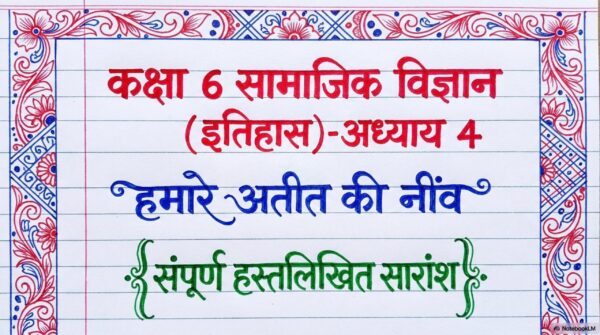 कक्षा 6 सामाजिक विज्ञान
(इतिहास)-अध्याय 4
हमारे अतीत की नींव
{संपूर्ण हस्तलिखित सारांश}
NotebookLM